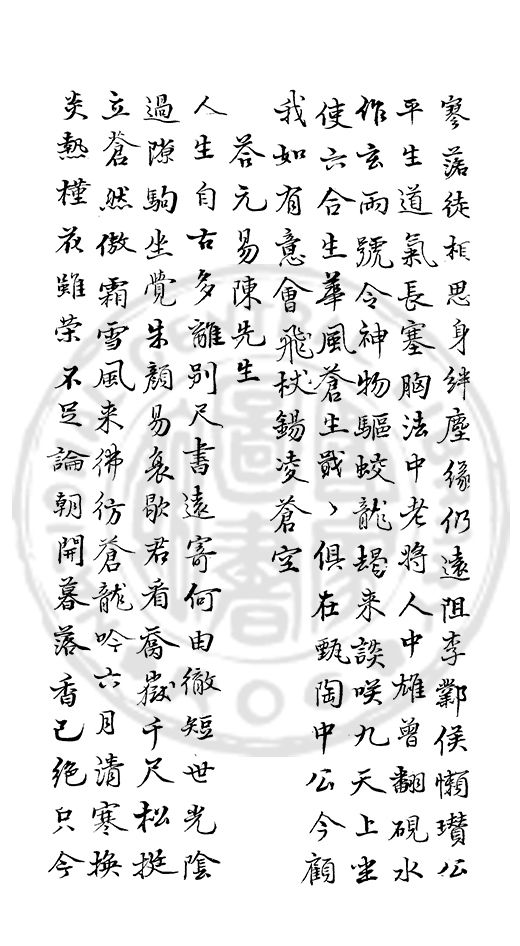 寥落徒相思身絆塵緣仍遠阻李鄴侯懶瓚公
平生道氣長塞胸法中老將人中雄曾翻硯水
作玄雨號令神物驅蛟龍朅來談咲九天上坐
使六合生華風蒼生戢〻俱在甄陶中公今顧
我如有意會飛杖錫凌蒼空
荅元易陳先生
人生自古多離別尺書遠寄何由徹短世光陰
過隙駒坐覺朱顏易衰歇君看喬嶽千尺松挺
立蒼然傲霜雪風来彿彷蒼龍吟六月清寒換
炎熱槿花雖荣不足論朝開暮落香已絕只今